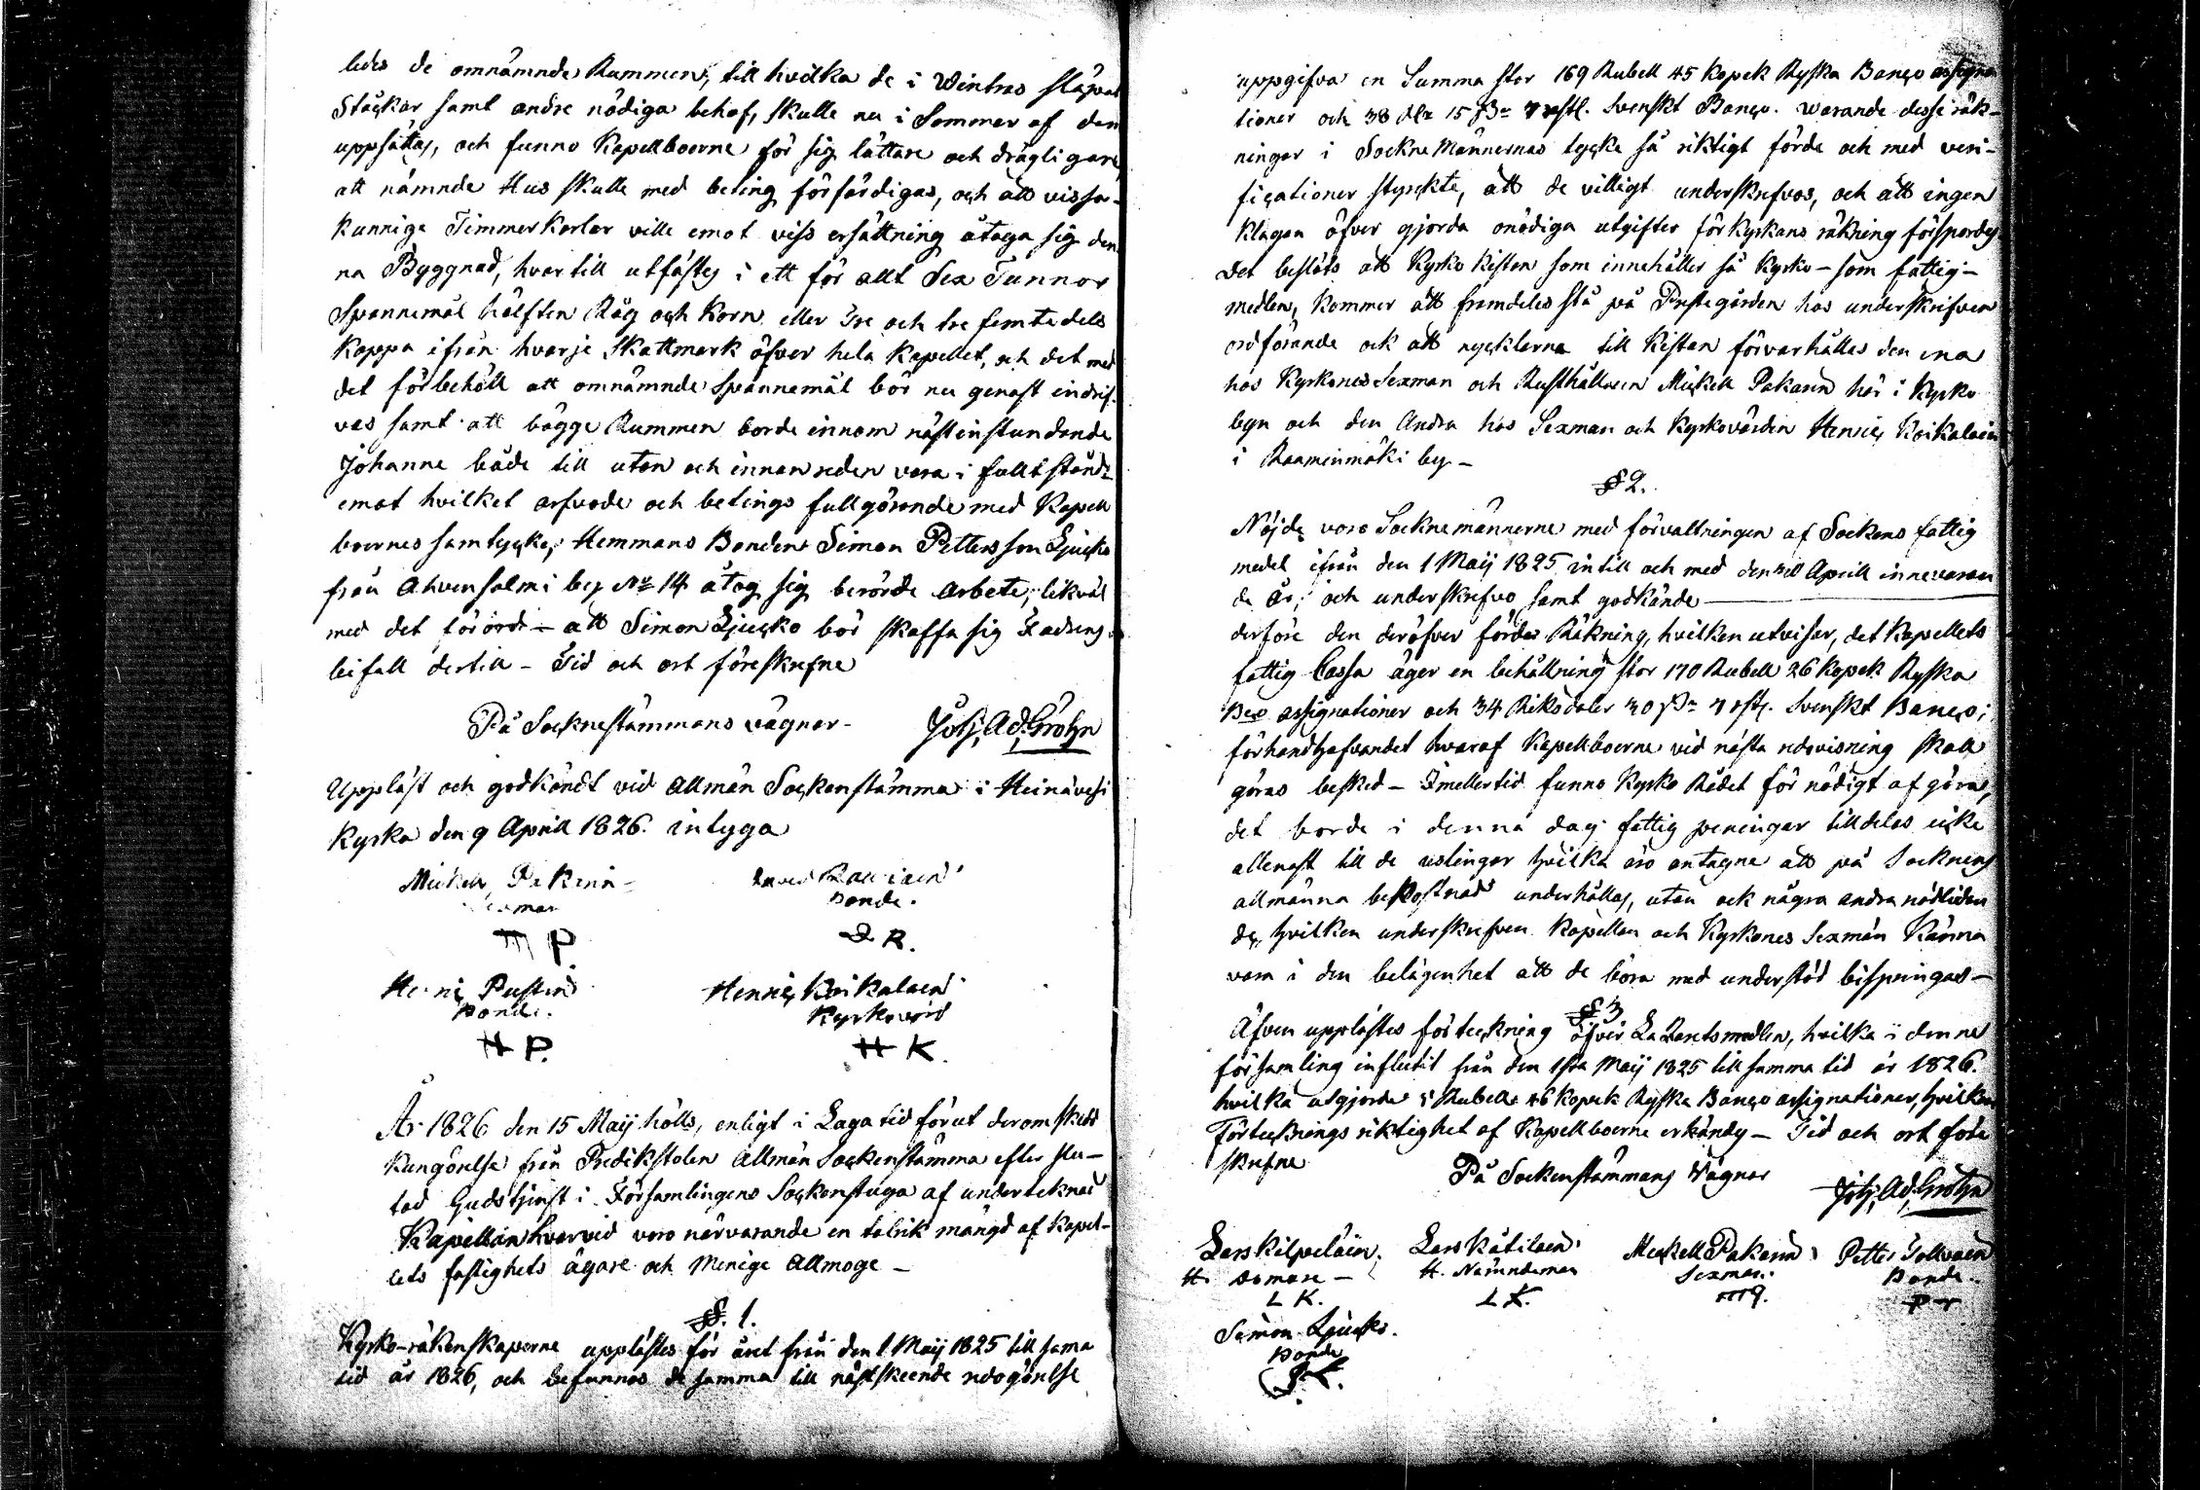 ledes de omnämnde Rummen, till hvilka de i Wintras släpade
Stockar samt andre nödiga behof, skulle nu i Sommar af dem
uppsättas, och funno Kapellboerne för sig lättare och drägligare,
att nämnde Hus skulle med beting förfärdigas, och att vissa
kunnige Timmerkarlar ville emot viss ersättning åtaga sig den
na Byggnad, hvartill utfästes i ett för allt Sex Tunnor
Spannemål hälften Råg och Korn eller Tre och tre femtedels
Kappa ifrån hvarje Skattmark öfver hela Kapellet, och det med
det förbehåll att omnämnde Spannemål bör nu genast indrif-
vas samt att bägge Rummen borde innom nästinstundande
Johanne både till utan och innan reden vara i fullt stånd:
emot hvilket arfvode och betings fullgörande med Kapell
boernes samtycke, Hemmans Bonden Simon Pettersson Ljucko
från Ahvensalmi by No 14 åtog sig berörde arbete, likväl
med det förord – att Simon Ljucko bör skaffa sig Fadrens
bifall dertill – Tid och ort föreskrefne
På Socknestämmans vägnar – Joh. Ad. Grohn
Uppläst och godkändt vid Allmän Sockenstämma i Heinävesi
Kyrka den 9 April 1826. intyga
Mickell Pakarin David Rautiain
Sexman Bonde.
MP. DR.
Henric Pustin Henric Koikalain
Bonde. Kyrkovärd
HP. HK.
År 1826 den 15 Maij hölls, enligt i Laga tid förut derom skedd
Kungörelse från Predikstolen Allmän Sockenstämma efter slu-
tad Gudstjenst i Församlingens Sockenstuga af undertecknad
Kapellan hvarvid voro närvarande en talrik mängd af Kapel-
lets fastighets ägare och Menige Allmoge –
§. 1.
Kyrko-räkenskaperne upplästes för året från den 1 Maij 1825 till sama
tid år 1826, och befunnos de samma till nästskeende redogörelse
uppgifva en Summa stor 169 Rubell 45 Kopek Ryska Banco assigna
tioner och 38 dlr 15 7 rstl. Svenskt Banco. warande desse räk-
ningar i Sockne Männernas tycke så riktigt förde och med veri-
ficationer styrckte, att de villigt underskrefvos, och att ingen
klagan öfver gjorda onödiga utgifter för Kyrkans räkning försportes
Det beslöts att Kyrko Kistan som innehåller så Kyrko – som fattig –
medlen, kommer att framdeles stå på Prestegården hos underskrifven
ordförande och att nycklarna till Kistan förvarhålles den ena
hos Kyrkones Sexman och Rusthållaren Mickell Pakarin här i Kyrko
byn och den Andra hos Sexman och Kyrkovärden Henric Koikalain
i Raaminmäki by –
§ 2.
Nöjde voro Socknemännerne med förvaltningen af Sockens fattig
medel ifrån den 1 Maij 1825 intill och med den Aprill innevaran
de år; och underskrefvo samt godkände
derföre den deröfver förde Räkning, hvilken utvisar, det Kapellets
fattig Cassa äger en behållning stor 170 Rubell 26 Kopek Ryska
Bco assignationer och 34 Riksdaler 30 7 rstl. Svenskt Banco;
förhandhafvandet hvaraf Kapellboerne vid nästa redovisning skall
göras besked – Imellertid funno Kyrko Rådet för nödigt afgöra,
det borde i denna dag fattig penningar tilldelas icke
allenast till de uslingar hvilka äro antagne att på Socknens
allmänna bekostnad underhållas, utan ock några andra nödlidan
de, hvilken underskrefven Kapellan och Kyrkones Sexmän Känna
vara i den belägenhet att de böra med understöd bispringas –
§ 3
Äfven upplästes förteckning öfver Lazaretsmedlen, hvilka i denna
församling influtit från den 1sta Maij 1825 till samma tid år 1826.
hvilka utgjorde 5 Rubell 46 kopek Ryska Banco assignationer, hvilken
Förtecknings riktighet af Kapellboerne erkändes – Tid och ort före
skrefne
På Sockenstämmans Vägnar Joh. Ad. Grohn
Lars Kilpeläin, Lars Kätilain Mickell Pakarin Petter Tolvain
H. Domare – H. Nämndeman Sexman. Bonde.
L K. L K. MP. P T
Simon Ljucko.
Bonde